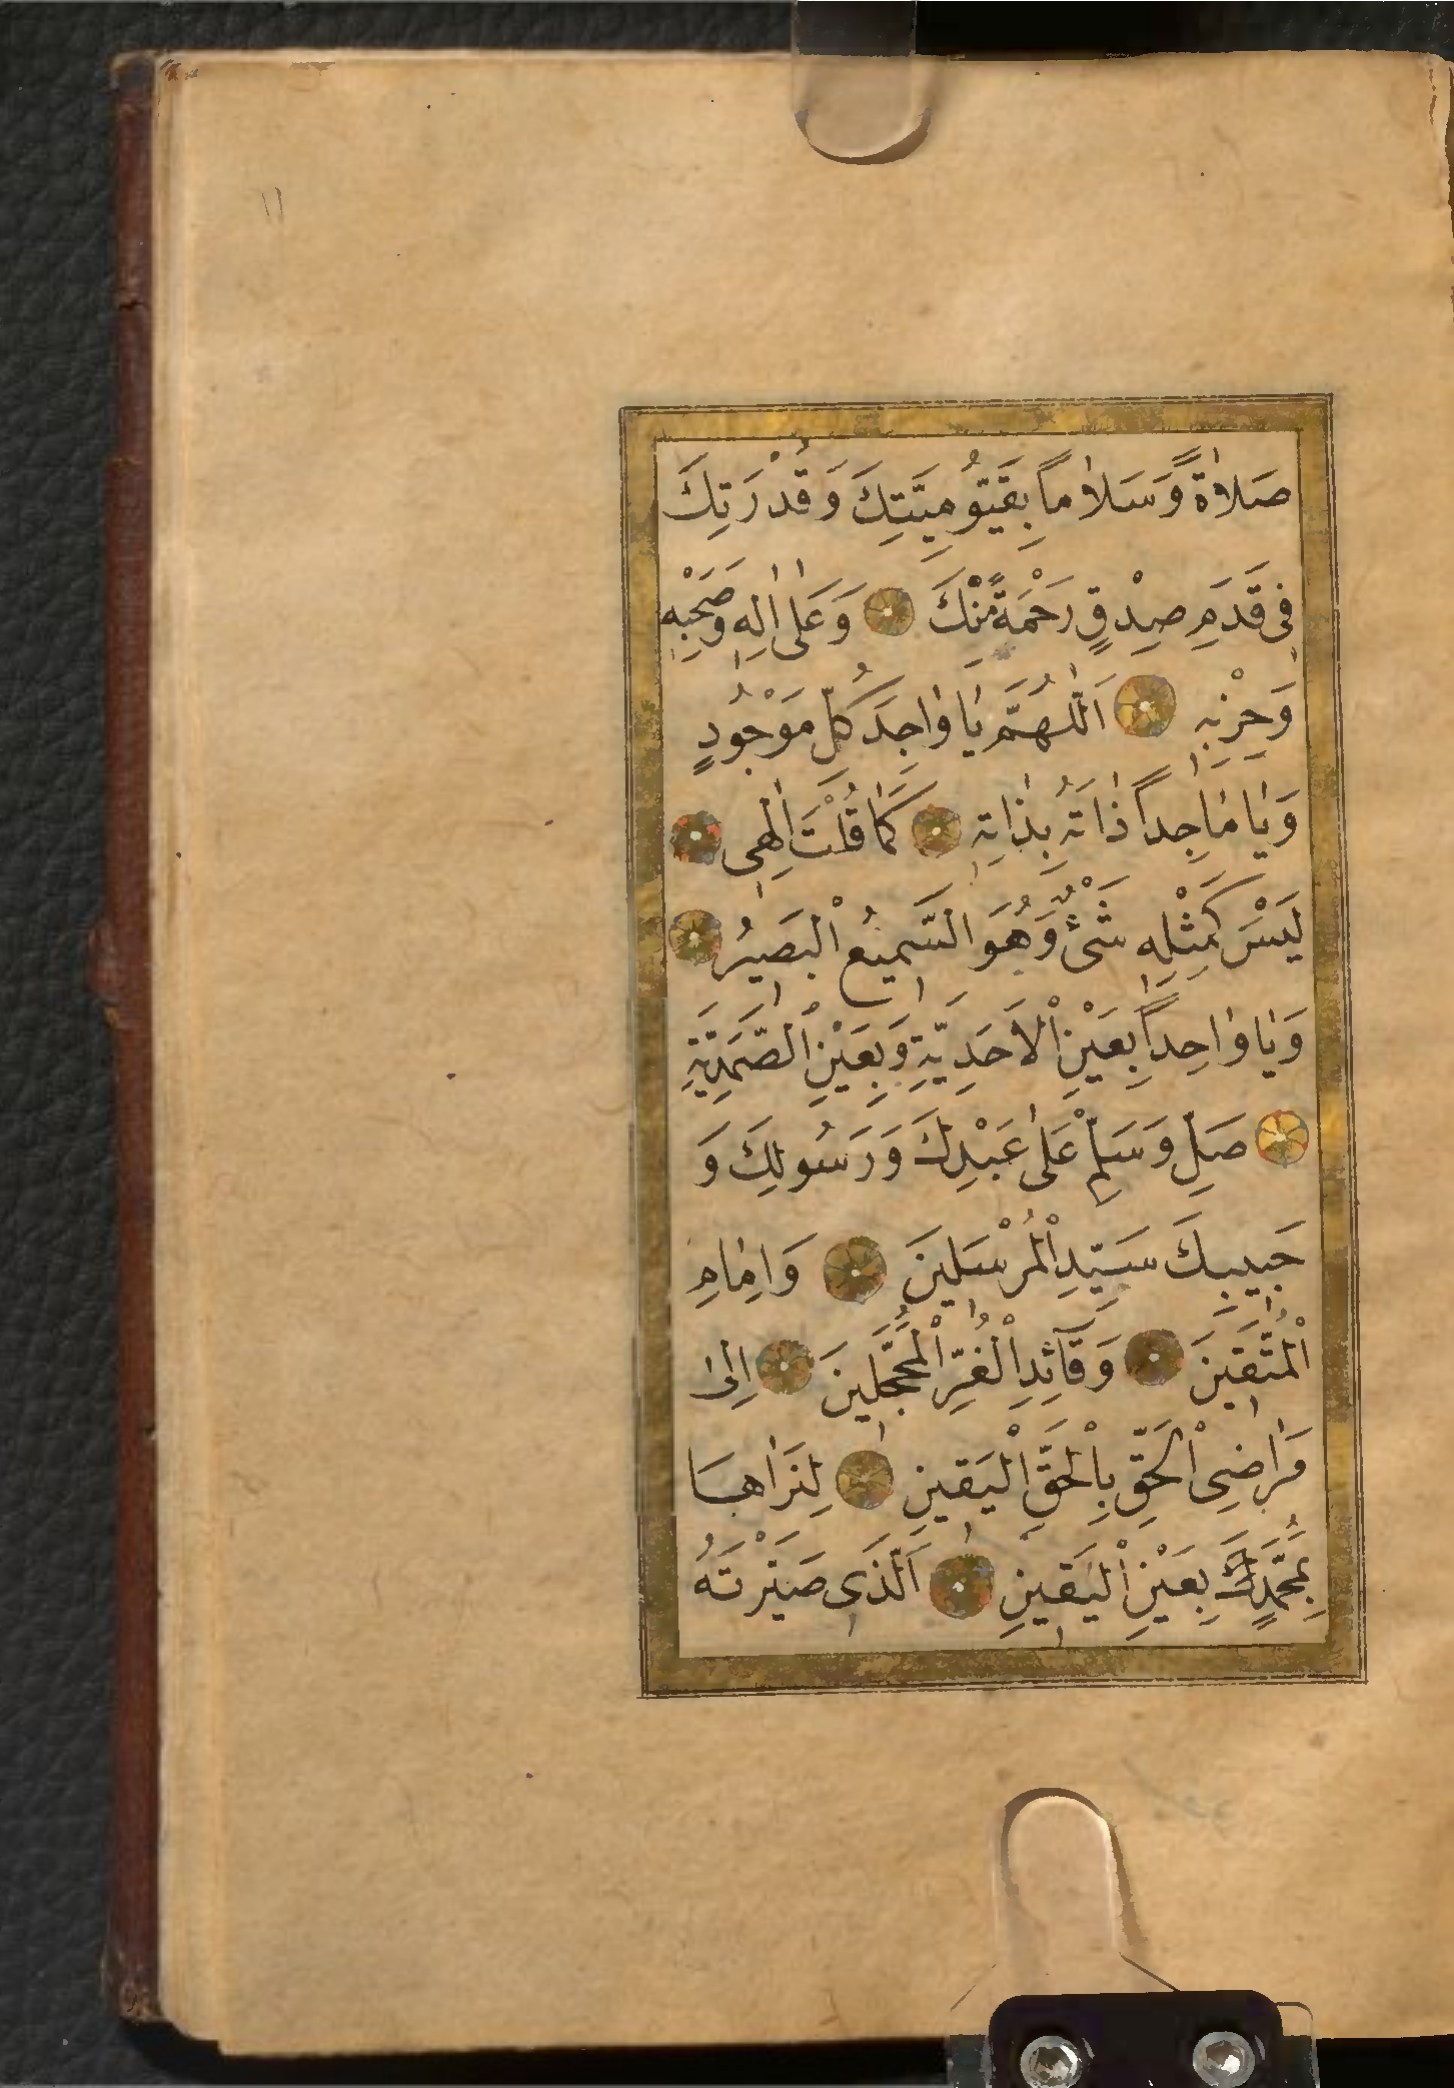 ١١
صَلَاةً وَسَلَامًا بِقَيُّومِيَّتِكَ وَقُدْرَتِكَ
فِى قَدَمِ صِدْقٍ رَحْمَةً مِنْكَ وَعَلٰى اٰلِهِ وَصَحْبِهِ
وَحِزْبِهِ اَللّٰهُمَّ يَا وَاجِدَ كُلِّ مَوْجُودٍ
وَيَا مَاجِدًا ذَاتُهُ بِذَاتِهِ كَمَا قُلْتَ اِلٰهِى
لَيْسَ كَمِثْلِهِ شَىْءٌ وَهُوَ السَّمِيعُ الْبَصِيرُ
وَيَا وَاحِدًا بِعَيْنِ الْاَحَدِيَّةِ وَبِعَيْنِ الصَّمَدِيَّةِ
صَلِّ وَسَلِّمْ عَلٰى عَبْدِكَ وَرَسُولِكَ وَ
حَبِيبِكَ سَيِّدِ الْمُرْسَلِينَ وَاِمَامِ
الْمُتَّقِينَ وَقَآئِدِ الْغُرِّ الْمُحَجَّلِينَ اِلٰى
مَرَاضِى الْحَقِّ بِالْحَقِّ الْيَقِينِ لِنَرَاهَا
بِمُحَمَّدِكَ بِعَيْنِ الْيَقِينِ اَلَّذِى صَيَّرْتَهُ